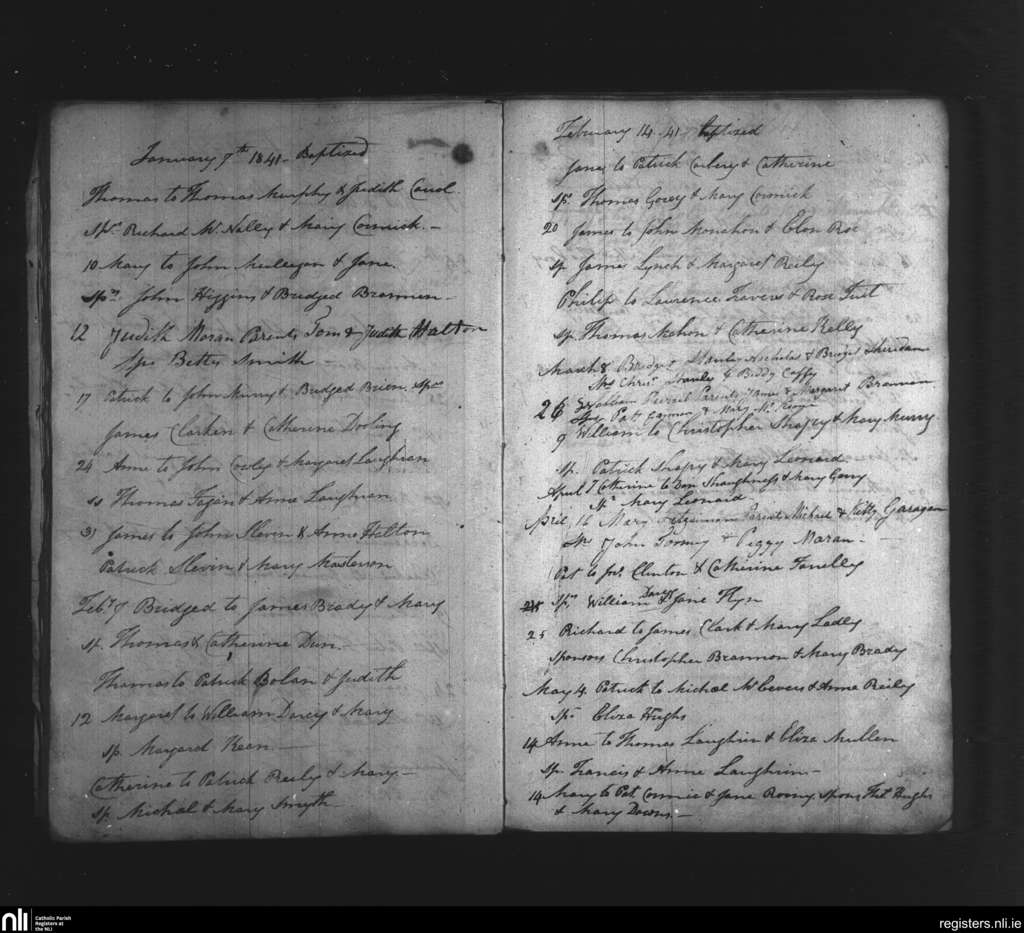 January 7th 1841 - Baptized
Thomas to Thomas Murphy & Judith Carol
Spr. Richard McNally & Mary Cormick. -
10 Mary to John Mulegan & Jane.
Sprs John Higgins & Bridged Brannen -
12 Judith Moran Prents Tom & Judith Hatton
Sps Betty Smith -
17 Patrick to John Murry & Bridged Brien, Spr
James Clarken & Catherine Dooling
24 Anne to John Cowly & Margaret Laughran
ss Thomas Fegin & Anne Laughran
31 James to John Slevin & Anne Hatton
Patrick Slevin & Mary Masterson
Feby 7 Bridged to James Brady & Mary
Sp. Thomas & Catherine Dun.
Thomas to Patrick Bolan & Judith
12 Margaret to William Darcy & Mary
Sp. Margard Kean -
Catherine to Patrick Reily & Mary -
Sp. Michal & Mary Smyth -
February 14 - 41 - Baptized
James to Patrick Corbery & Catherine
Sp. Thomas Gorey & Mary Cormick
20 James to John Monahon & Elon Roe
Sp James Lynch & Margaret Reily
Philip to Laurence Travers & Rose Tuit
Sp. Thomas Mahon & Catherine Kelly
March 8 Bridget Stanley Nicholas & Bridget Sheridan
Sps Christ. Stanley & Biddy Caffry
26 Parents James & Margaret Brannon
Sps Patt & Mary
9 William to Christopher Shapy & Mary Murry.
Sp. Patrick Shapy & Mary Leonard
April 7 Catherine to Shaughness & Mary Garry
Sp. Mary Leonard
April 16 Mary Parents Michael & Kitty Garagan
Sps John Tormy & Peggy Maran -
Pat to Jno. Clinton & Catherine Farrelly
Spr. William Darcy & Jane Flyn
25 Richard to James Clark & Mary Ladly
Sponsors Christopher Brannon & Mary Brady
May 4. Patrick to Michael McCevers & Anne Reily
Sp. Eliza Hughs
14 Anne to Thomas Laughrin & Eliza Mullen
Sp. Francis & Anne Laughrin -
14 Mary to Pat Cormic & Jane Roony Spons. Hughs
& Mary Downs. -
nli
Catholic Parish
Registers at
the NLI
registers.nli.ie